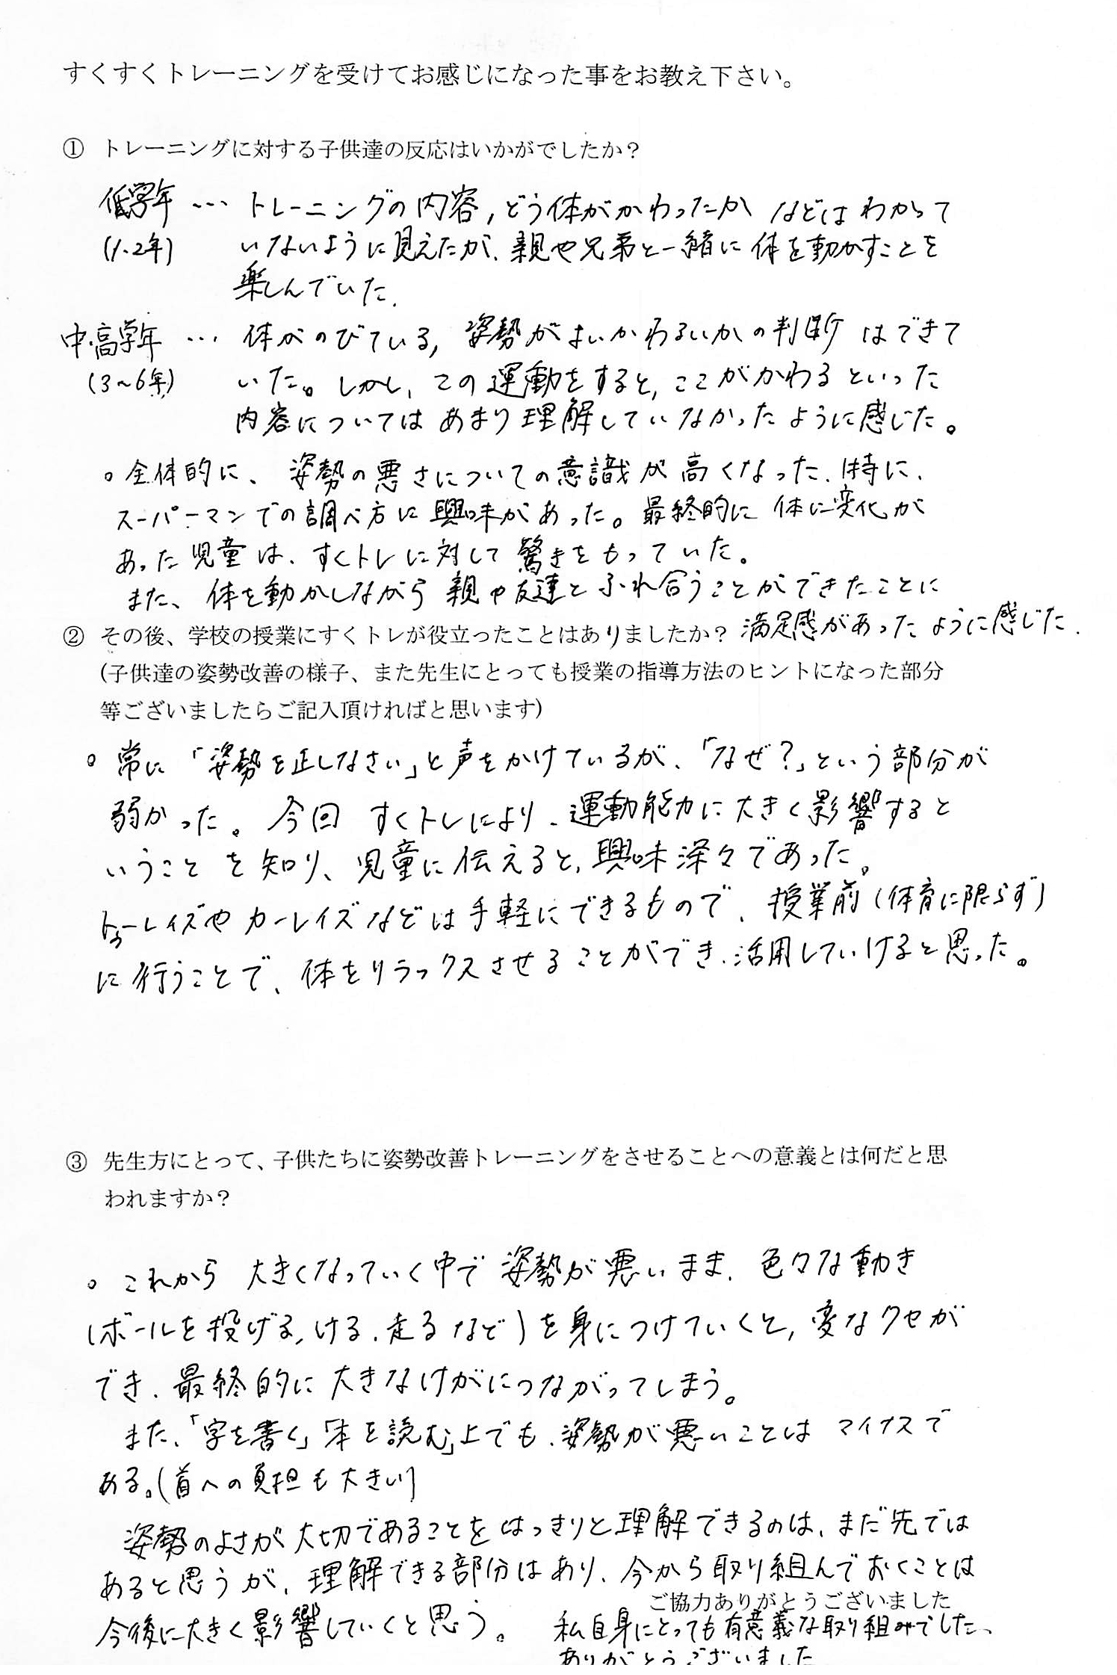 すくすくトレーニングを受けてお感じになった事をお教え下さい。
① トレーニングに対する子供達の反応はいかがでしたか？
低学年 … トレーニングの内容, どう体がかわったか などは わかって
(1.2年) いないように見えたが、親や兄弟と一緒に体を動かすことを
楽しんでいた.
中・高学年 … 体がのびている, 姿勢がよいかわるいかの判断 はできて
(3～6年) いた。しかし, この運動をすると, ここがかわるといった
内容については あまり理解していなかったように感じた。
○ 全体的に、姿勢の悪さについての意識が高くなった. 特に、
スーパーマンでの調べ方に興味があった。最終的に 体に変化が
あった児童は、すくトレに対して驚きをもっていた。
また、体を動かしながら 親や友達とふれ合うことができたことに
満足感があったように感じた.
② その後、学校の授業にすくトレが役立ったことはありましたか？
(子供達の姿勢改善の様子、また先生にとっても授業の指導方法のヒントになった部分
等ございましたらご記入頂ければと思います)
○ 常に「姿勢を正しなさい」と声をかけているが、「なぜ？」という部分が
弱かった。今回 すくトレにより、運動能力に大きく影響すると
いうことを知り、児童に伝えると, 興味深々であった。
トゥーレイズや カーレイズなどは手軽にできるもので、授業前 (体育に限らず)
に行うことで、体をリラックスさせることができ、活用していけると思った。
③ 先生方にとって、子供たちに姿勢改善トレーニングをさせることへの意義とは何だと思
われますか？
○ これから 大きくなっていく中で 姿勢が悪いまま、色々な動き
(ボールを投げる, ける, 走るなど) を身につけていくと, 変なクセが
でき、最終的に大きなけがにつながってしまう。
また、「字を書く」「本を読む」上でも、姿勢が悪いことは マイナスで
ある。(首への負担も大きい)
姿勢のよさが大切であることをはっきりと理解できるのは、まだ先では
あると思うが、理解できる部分はあり、今から取り組んでおくことは
今後に大きく影響していくと思う。
ご協力ありがとうございました
私自身にとっても有意義な取り組みでした、
ありがとうございました